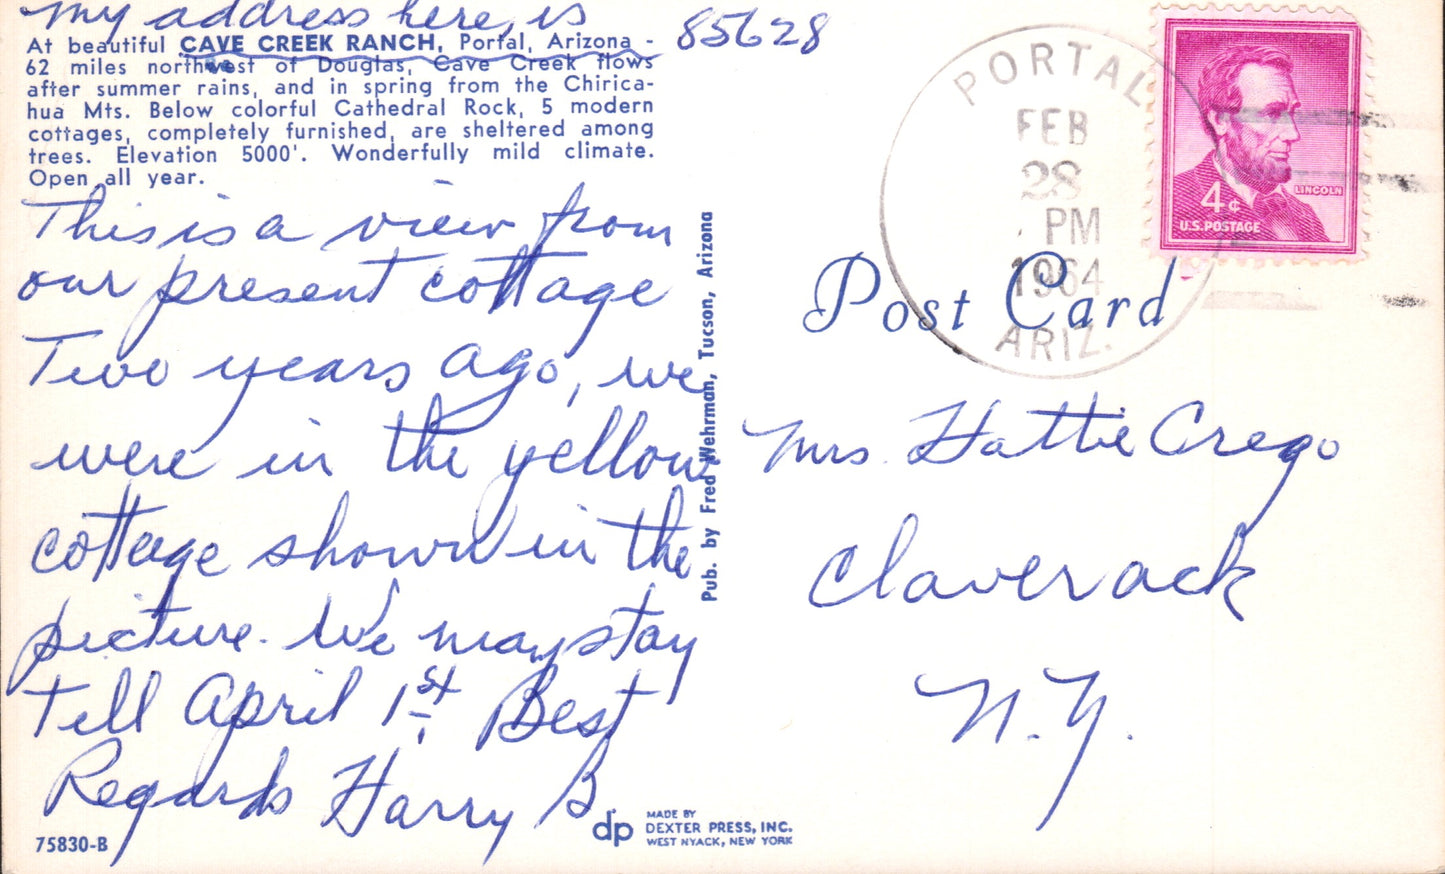 my address here, is
85628
At beautiful CAVE CREEK RANCH, Portal, Arizona -
62 miles northwest of Douglas, Cave Creek flows
after summer rains, and in spring from the Chirica-
hua Mts. Below colorful Cathedral Rock, 5 modern
cottages, completely furnished, are sheltered among
trees. Elevation 5000'. Wonderfully mild climate.
Open all year.
This is a view from
our present cottage
Two years ago, we
were in the yellow
cottage shown in the
picture. We may stay
till April 1st. Best
Regards Harry B
75830-B
Pub. by Fred Wehrman, Tucson, Arizona
dp
MADE BY
DEXTER PRESS, INC.
WEST NYACK, NEW YORK
PORTAL
FEB
28
PM
1964
ARIZ.
LINCOLN
4¢
U.S. POSTAGE
Post Card
Mrs. Hattie Crego
Claverack
N.Y.